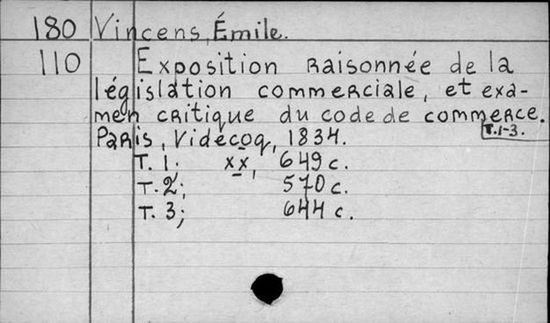 180 Vincens, Émile.
110 Exposition raisonnée de la
législation commerciale, et exa-
men critique du code de commerce.
Paris, Videcoq, 1834. T.1-3.
T. 1; xx, 649 c.
T. 2; 570 c.
T. 3; 644 c.